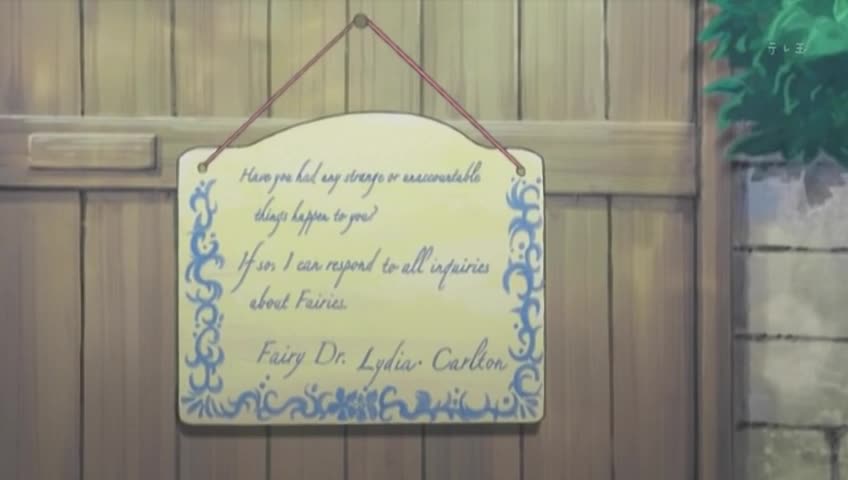 テレ玉
Have you had any strange or unaccountable
things happen to you?
If so, I can respond to all inquiries
about Fairies.
Fairy Dr. Lydia・Carlton